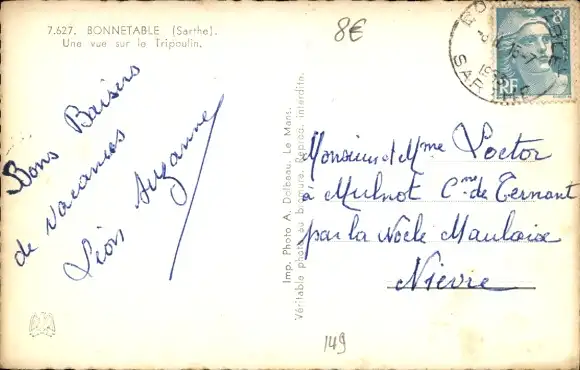 7.627. BONNETABLE (Sarthe).
Une vue sur le Tripoulin.
8€
Bons Baisers
de vacances
Léon Suzanne
Imp. Photo A. Dolbeau, Le Mans.
Véritable photo au bromure. Reprod. interdite.
Monsieur et Mme Loctor
à Mulnot Cne de Ternant
par la Nocle Maulaise
Nièvre
149
RF